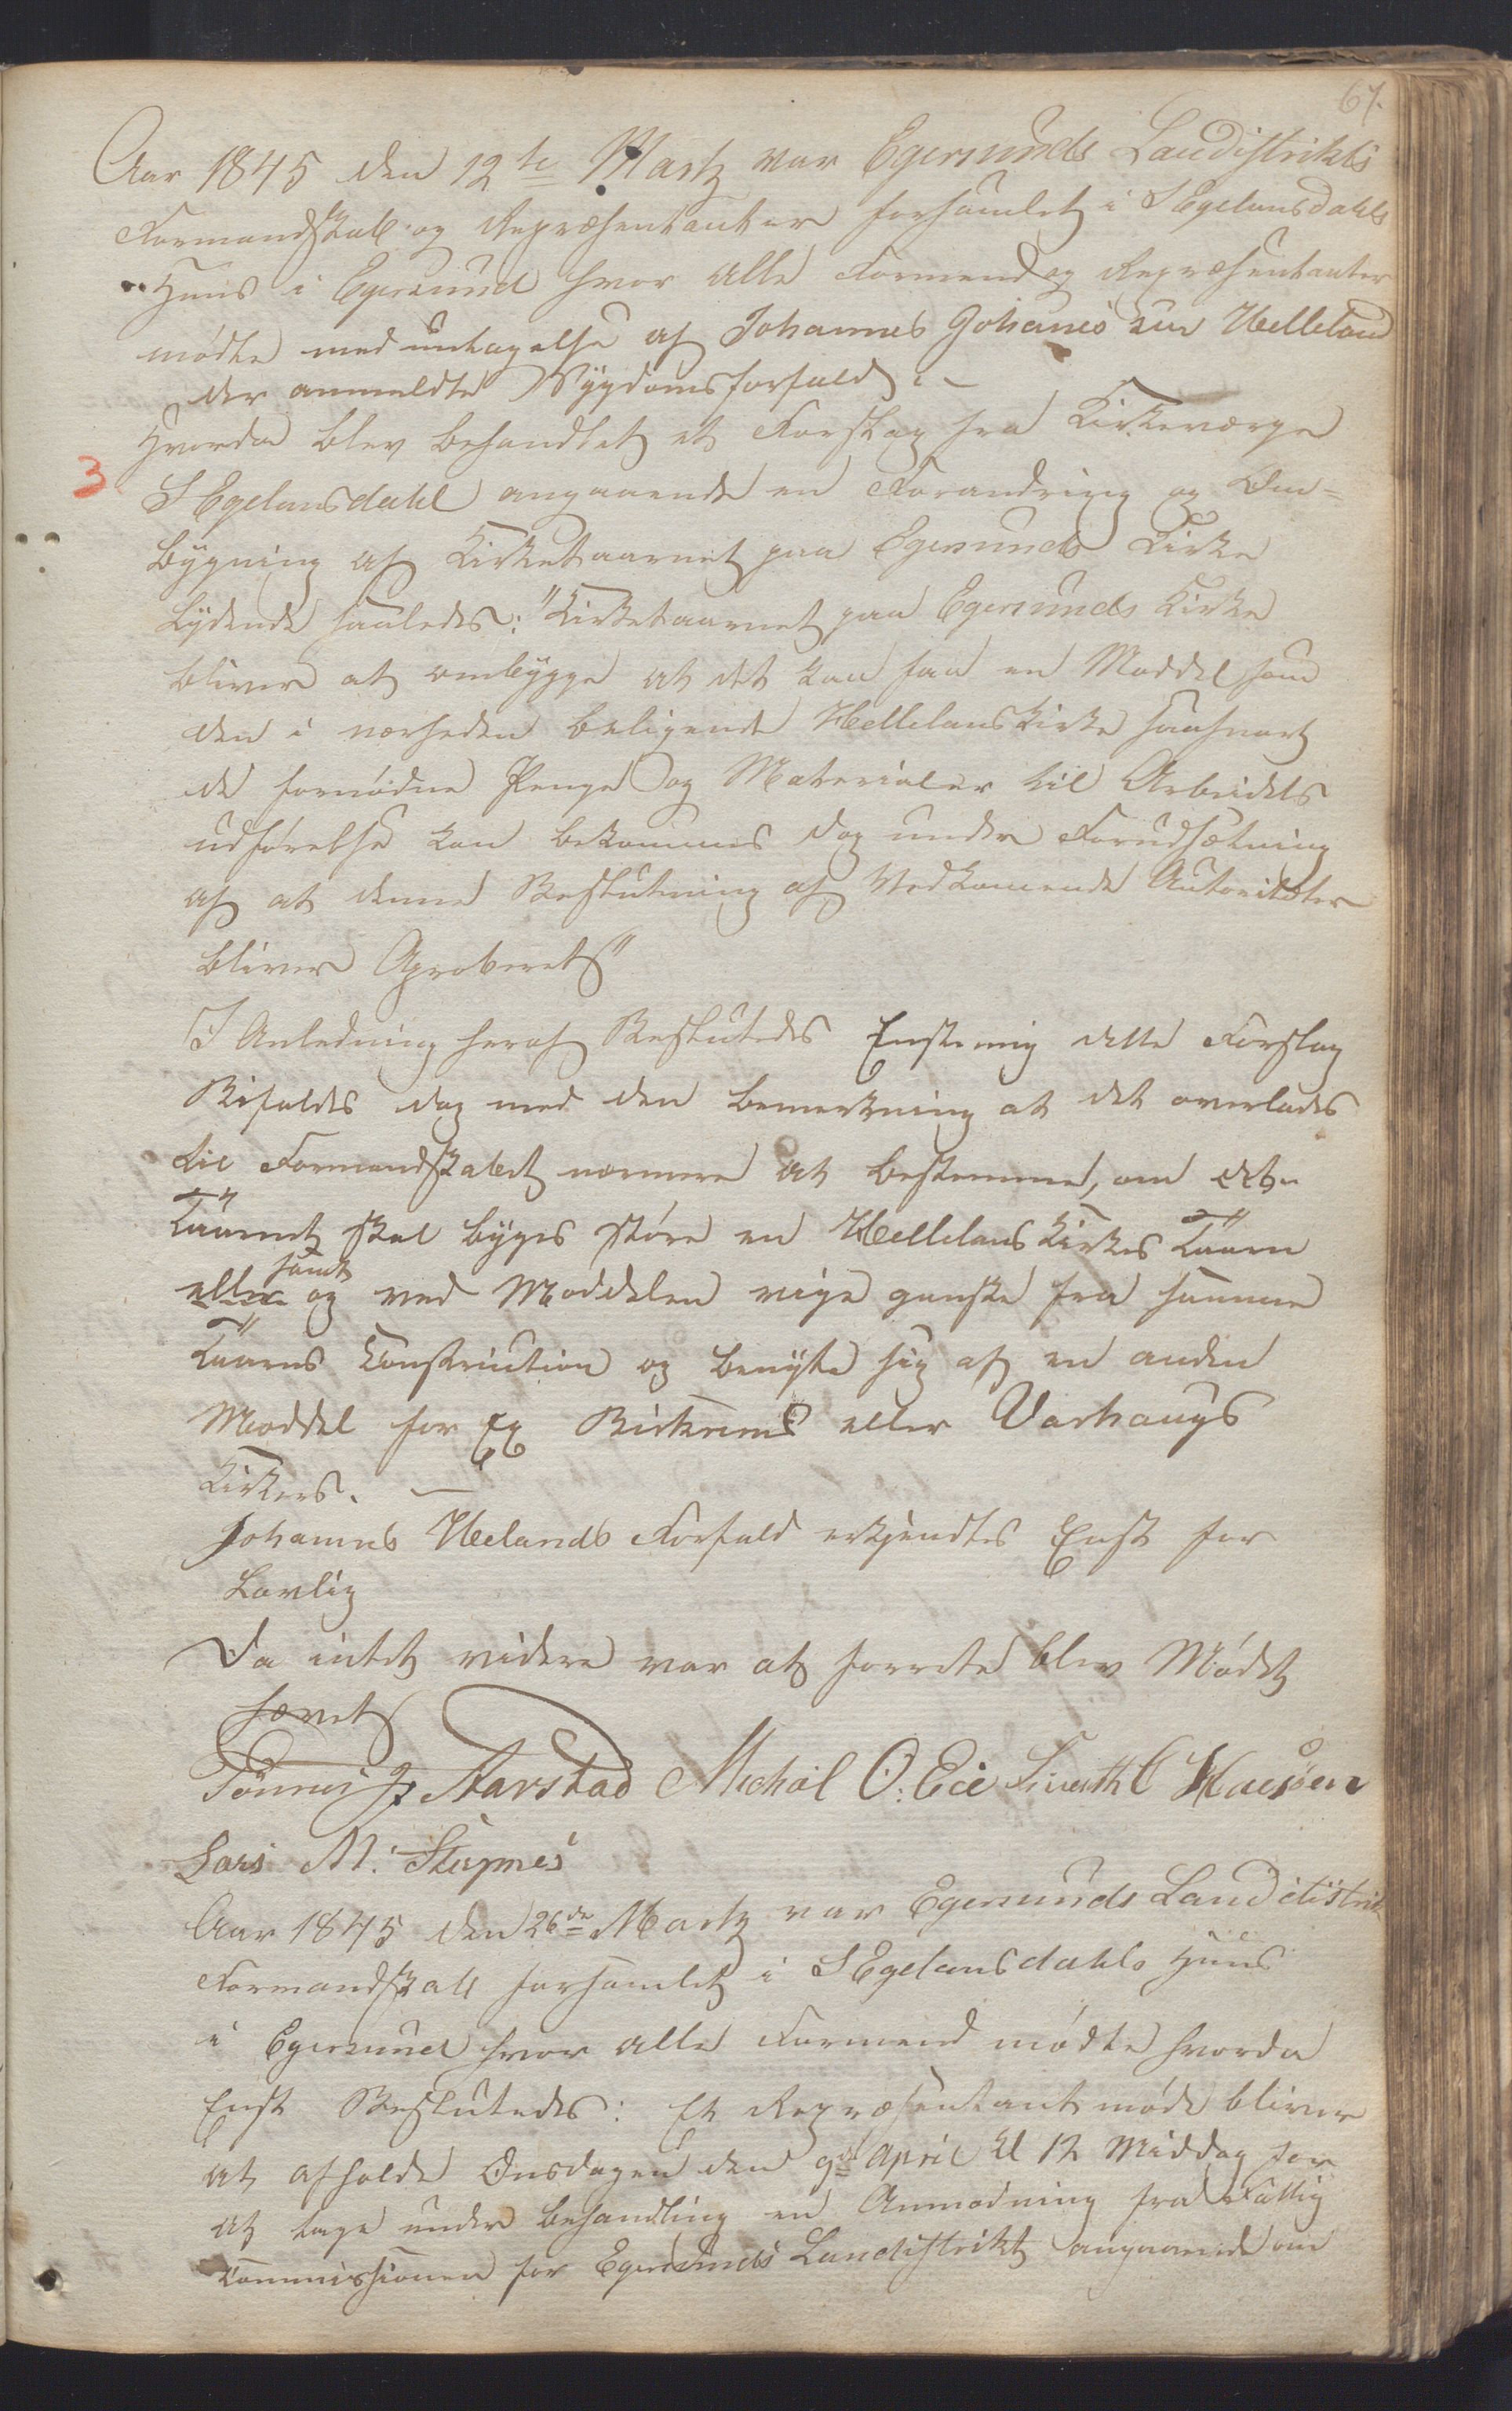 67.
Aar 1845 den 12te Martz var Egersunds Landistrikts
Formandskab og Repræsentanter forsamlet i S Egelandsdahls
Huus i Egersund hvor alle Formend og Repræsentanter
mødte med untagelse af Johannes Johanes søn Helleland
der anmeldte Sygdomsforfald. –
Hvorda blev behandlet et Forslag fra Kirkeværge
3
S Egelansdahl angaaende en Forandring og Om=
bygning af Kirketaarnet paa Egersunds Kirke
Lydende saaledes: "Kirketaarnet paa Egersunds Kirke
bliver at ombygge at det kan faa en Moddel som
den i nærheden beligende Hellelans Kirke saasnart
de fornødne Penge og Materialer til Arbeidets
udførelse kan bekommes dog under Forudsætning
af at denne Beslutning af Vedkomende Autoriteter
bliver Aproberet"
I Anledning heraf Beslutedes Enstemig dette Forslag
Bifaldes dog med den bemerkning at det overlades
til Formandskabet nærmere at bestemme, om det
Taarnet skal byges støre en Hellelans Kirkes Taarn
samt
eller og ved Moddelen vige ganske fra samme
Taarns Construction og benytte sig af en anden
Moddel for Ex Birkrems eller Varhougs
Kirkers. —
Johannes Helands Forfald erkjendtes Enst for
Lovlig
Da intet videre var at forrete blev Mødet
hævet
Tønnes J. Aarstad Michal O. Eie
Lars M. Skupnes
Aar 1845 den 26de Martz var Egersunds Landdistrik
Formandskab forsamlet i S Egelansdahls Huus
i Egersund hvor alle Formend mødte hvorda
Enst Beslutedes: Et Repræsentantmøde bliver
at afholde Onsdagen den 9de April Kl 12 Middag for
at tage under behandling en Anmodning fra Fattig
Commissionen for Egersunds Landistrikt angaaende om